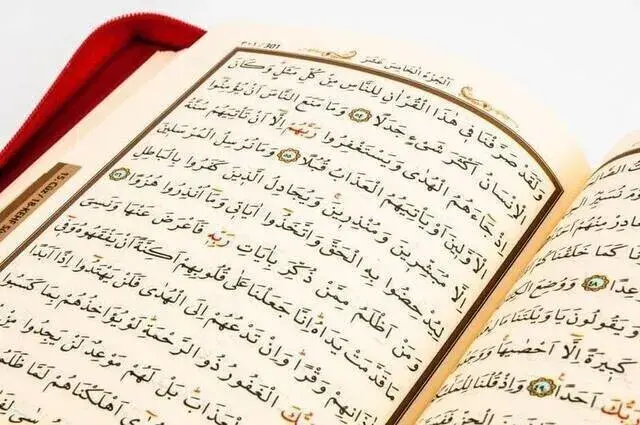 ٣٠١ / 301
اَلْجُزْءُ الْخَامِسَ عَشَرَ
وَلَقَدْ صَرَّفْنَا فِي هٰذَا الْقُرْاٰنِ لِلنَّاسِ مِنْ كُلِّ مَثَلٍ وَكَانَ
الْاِنْسَانُ اَكْثَرَ شَيْءٍ جَدَلًا ٥٤ وَمَا مَنَعَ النَّاسَ اَنْ يُؤْمِنُوا
اِذْ جَاءَهُمُ الْهُدٰى وَيَسْتَغْفِرُوا رَبَّهُمْ اِلَّا اَنْ تَأْتِيَهُمْ سُنَّةُ
الْاَوَّلِينَ اَوْ يَأْتِيَهُمُ الْعَذَابُ قُبُلًا ٥٥ وَمَا نُرْسِلُ الْمُرْسَلِينَ
اِلَّا مُبَشِّرِينَ وَمُنْذِرِينَ وَيُجَادِلُ الَّذِينَ كَفَرُوا بِالْبَاطِلِ
لِيُدْحِضُوا بِهِ الْحَقَّ وَاتَّخَذُوا اٰيَاتِي وَمَا اُنْذِرُوا هُزُوًا ٥٦
وَمَنْ اَظْلَمُ مِمَّنْ ذُكِّرَ بِاٰيَاتِ رَبِّهِ فَاَعْرَضَ عَنْهَا وَنَسِيَ
مَا قَدَّمَتْ يَدَاهُ اِنَّا جَعَلْنَا عَلٰى قُلُوبِهِمْ اَكِنَّةً اَنْ يَفْقَهُوهُ وَفِي
اٰذَانِهِمْ وَقْرًا وَاِنْ تَدْعُهُمْ اِلَى الْهُدٰى فَلَنْ يَهْتَدُوا اِذًا اَبَدًا
الْغَفُورُ ذُو الرَّحْمَةِ لَوْ يُؤَاخِذُهُمْ بِمَا كَسَبُوا
الْعَذَابَ بَلْ لَهُمْ مَوْعِدٌ لَنْ يَجِدُوا مِنْ
اَهْلَكْنَاهُمْ لَمَّا ظَلَمُوا
كَمَا خَلَقْنَا
٤٨ وَوُضِعَ
يَقُولُونَ يَا وَيْلَتَنَا
كَبِيرَةً اِلَّا اَحْصٰيهَا
اَحَدًا ٤٩ وَاِذْ قُلْنَا